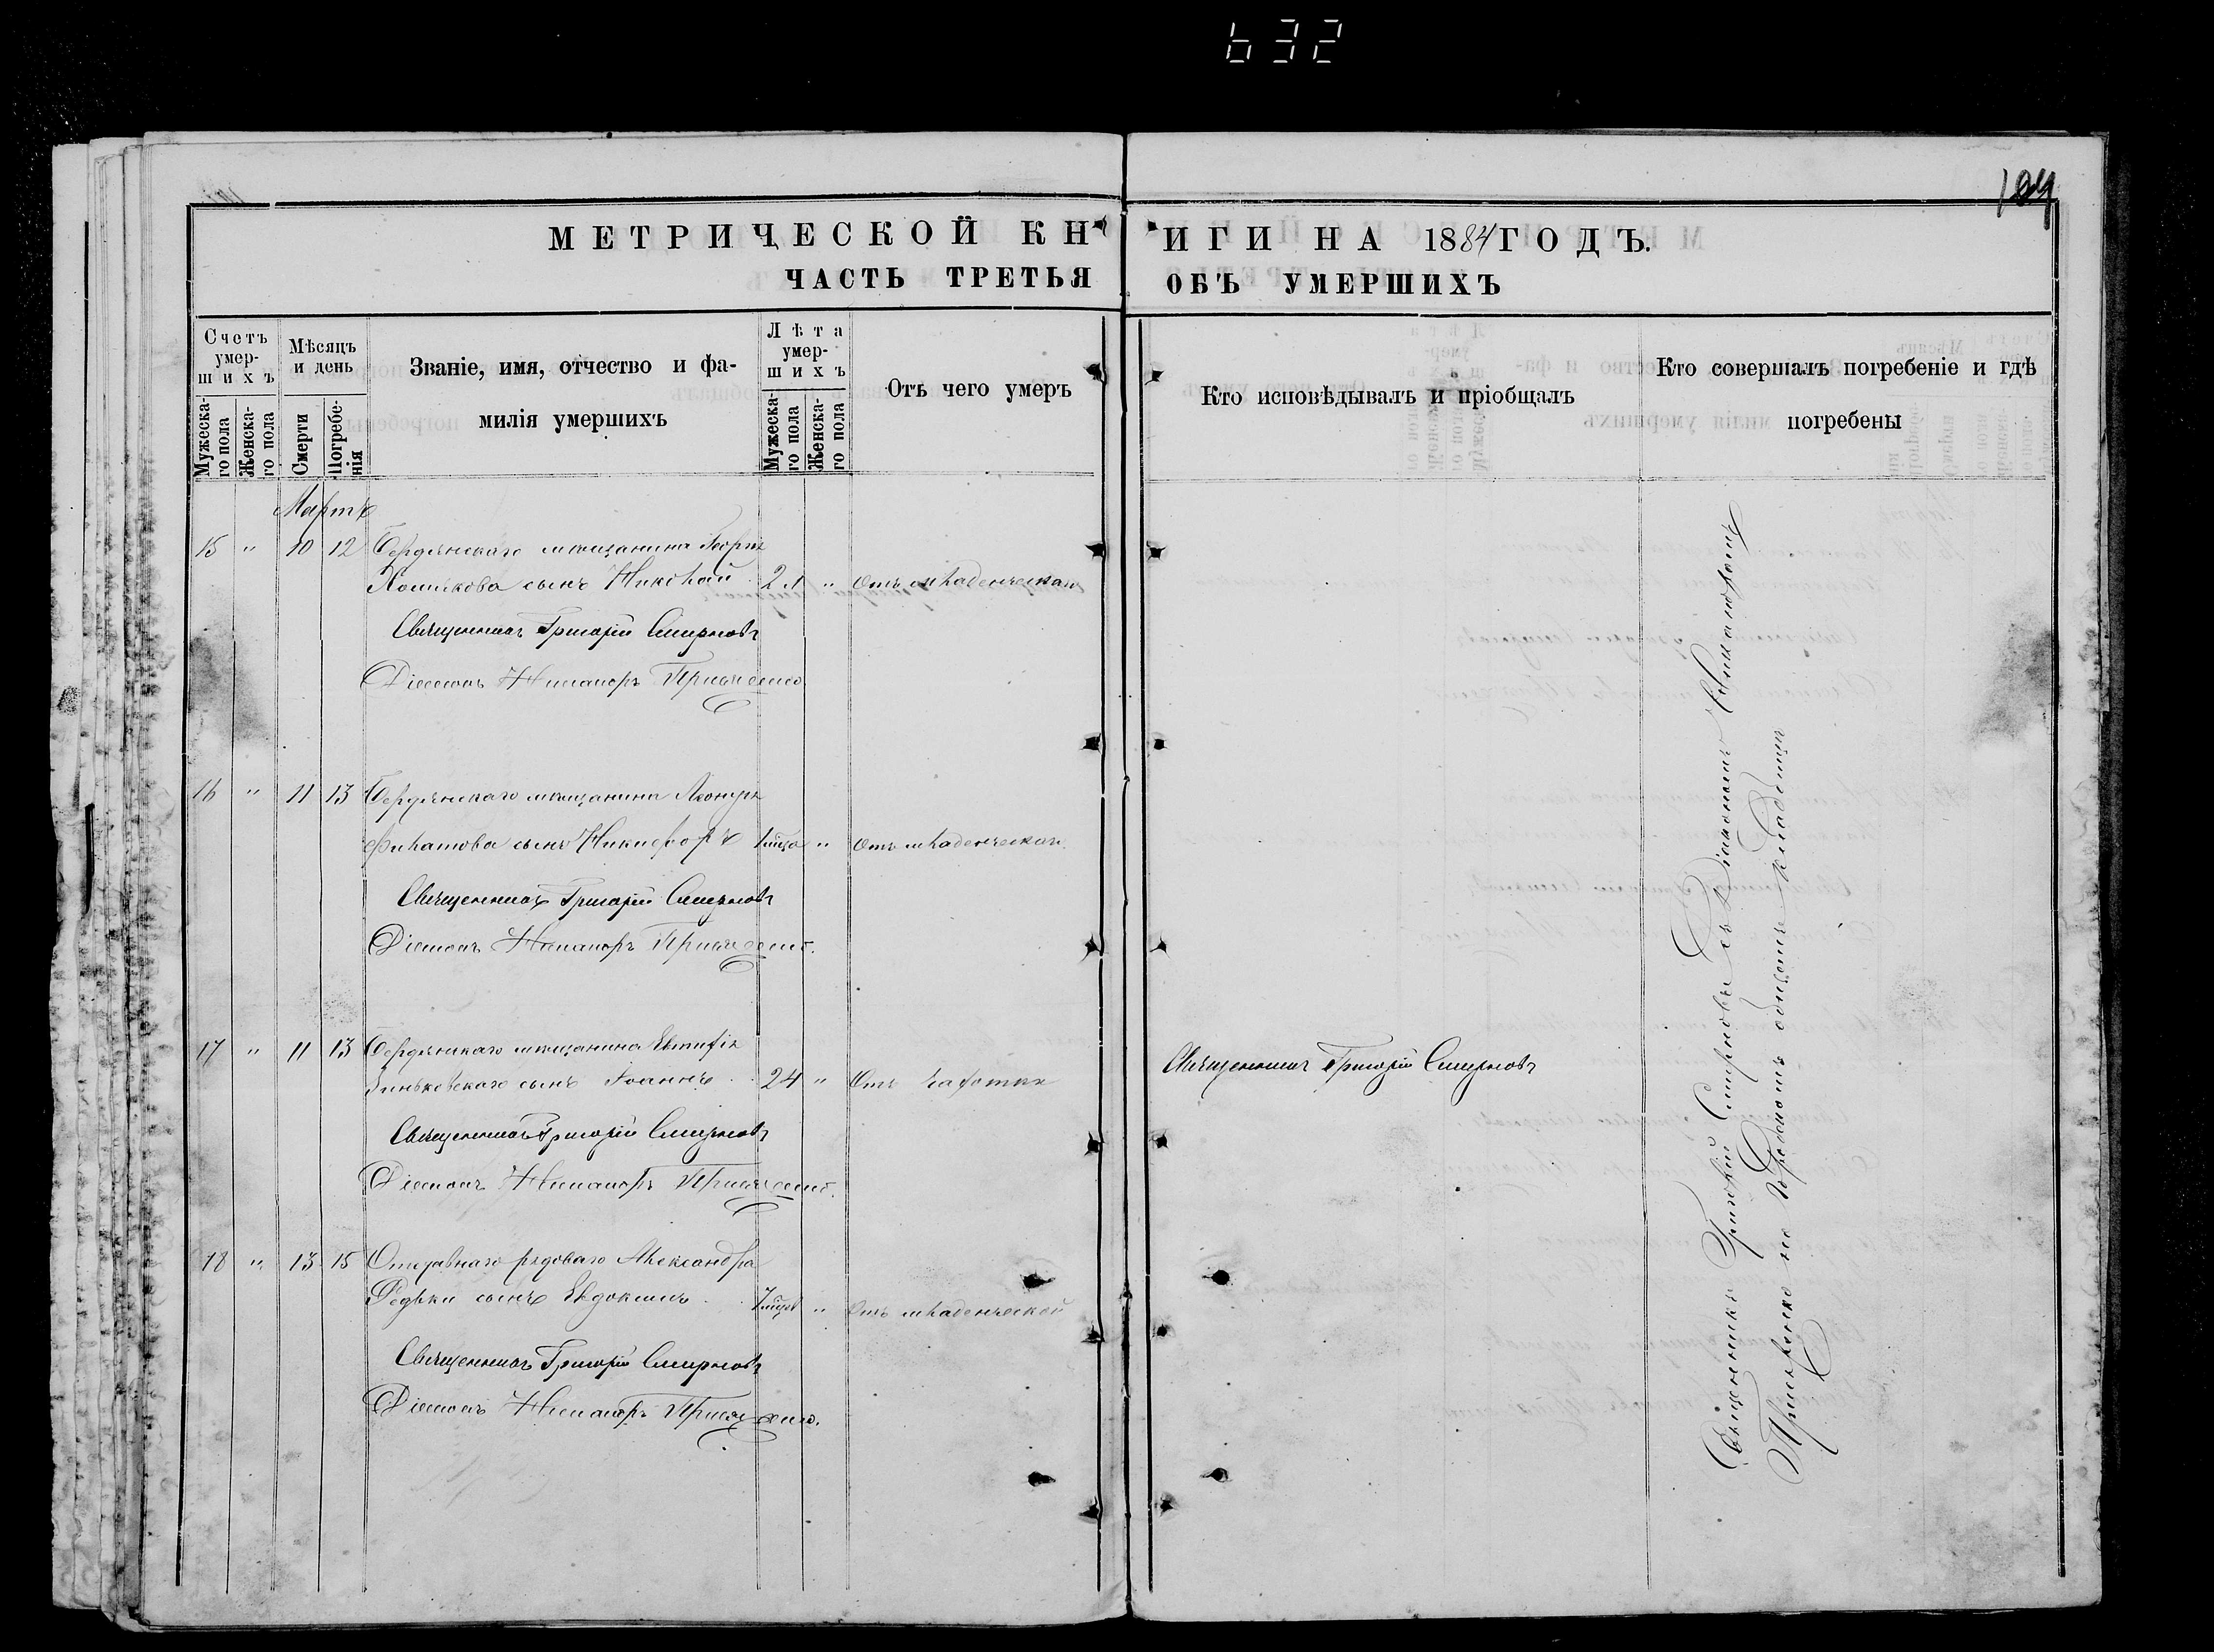 632
104
МЕТРИЧЕСКОЙ КНИГИ НА 1884 ГОДЪ.
ЧАСТЬ ТРЕТЬЯ ОБЪ УМЕРШИХЪ
Счетъ умер-
шихъ
Мужеска-
го пола
Женска-
го пола
Мѣсяцъ
и день
Смерти
Погребе-
нія
Званіе, имя, отчество и фа-
милія умершихъ
Лѣта
умер-
шихъ
Мужеска-
го пола
Женска-
го пола
Отъ чего умеръ
Кто исповѣдывалъ и пріобщалъ
Кто совершалъ погребеніе и гдѣ
погребены
Мартъ
15 " 10 12 Бердянскаго мѣщанина Георгія
сынъ Николай 2 " Отъ младенческой
Священникъ Григорій Смирновъ
Діаконъ Никаноръ
16 " 11 13 Бердянскаго мѣщанина
Филатова сынъ Никифоръ " Отъ младенческой
Священникъ Григорій Смирновъ
Діаконъ Никаноръ
17 " 11 13 Бердянскаго мѣщанина Евтифія
Зиньковскаго сынъ Іоаннъ 24 " Отъ чахотки
Священникъ Григорій Смирновъ
Священникъ Григорій Смирновъ
Діаконъ Никаноръ
18 " 13 15 Отставнаго рядоваго Александра
Редьки сынъ Евдокимъ 7 мѣсяц " Отъ младенческой
Священникъ Григорій Смирновъ
Діаконъ Никаноръ
Священникъ Григорій Смирновъ съ Діакономъ Никаноромъ
на городскомъ общемъ кладбищѣ